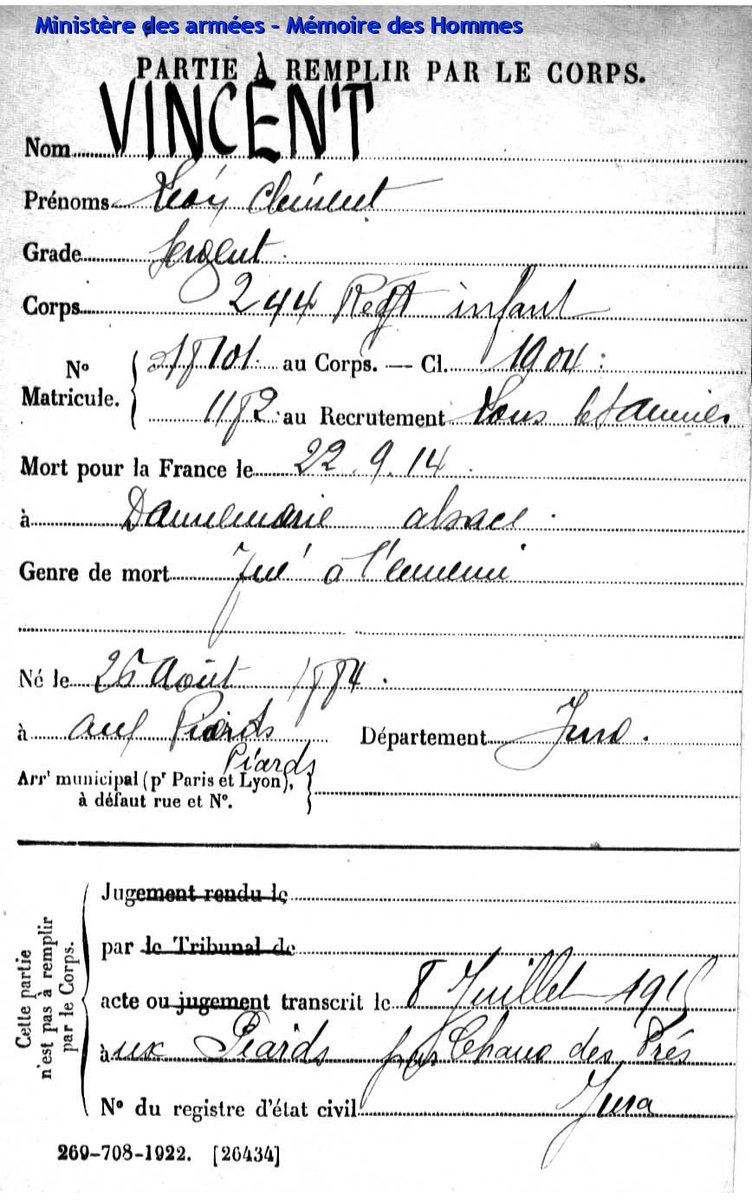 Ministère des armées - Mémoire des Hommes
PARTIE À REMPLIR PAR LE CORPS.
Nom VINCENT
Prénoms Léon Clément
Grade Sergent.
Corps 244 Regt infant
No Matricule. au Corps. — Cl. 1904.
1182 au Recrutement Lons
Mort pour la France le 22.9.14.
à Dannemarie alsace.
Genre de mort Tué à l'ennemi
Né le Août 1884.
à aux Piards Département Jura.
Piards
Arrt municipal (pr Paris et Lyon), à défaut rue et No.
Cette partie n'est pas à remplir par le Corps.
Jugement rendu le
par le Tribunal de
acte ou jugement transcrit le 8 Juillet 1915
à ux Piards par Chaux des Prés
No du registre d'état civil Jura
269-708-1922. [26434]